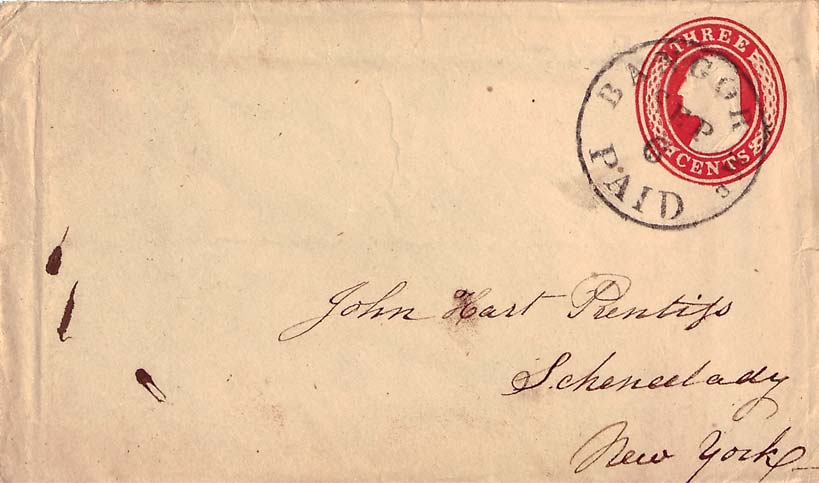 THREE
CENTS
BANGOR
SEP
6
PAID
3
John Hart Prentiſs
Schenectady
New York